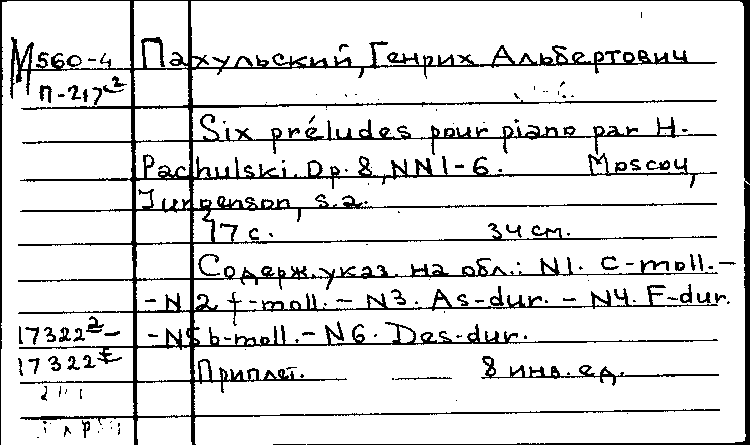 М560-4 Пахульский, Генрих Альбертович
П-217²
Six préludes pour piano par H.
Pachulski. Op. 8, NN1-6. Moscou,
Jurgenson, s.a.
17 с. 34 см.
Содерж. указ. на обл.: N1. C-moll. -
- N 2 f-moll. - N3. As-dur. - N4. F-dur.
- N5 b-moll. - N6. Des-dur.
17322
17322
Приплет. 8 инв. ед.